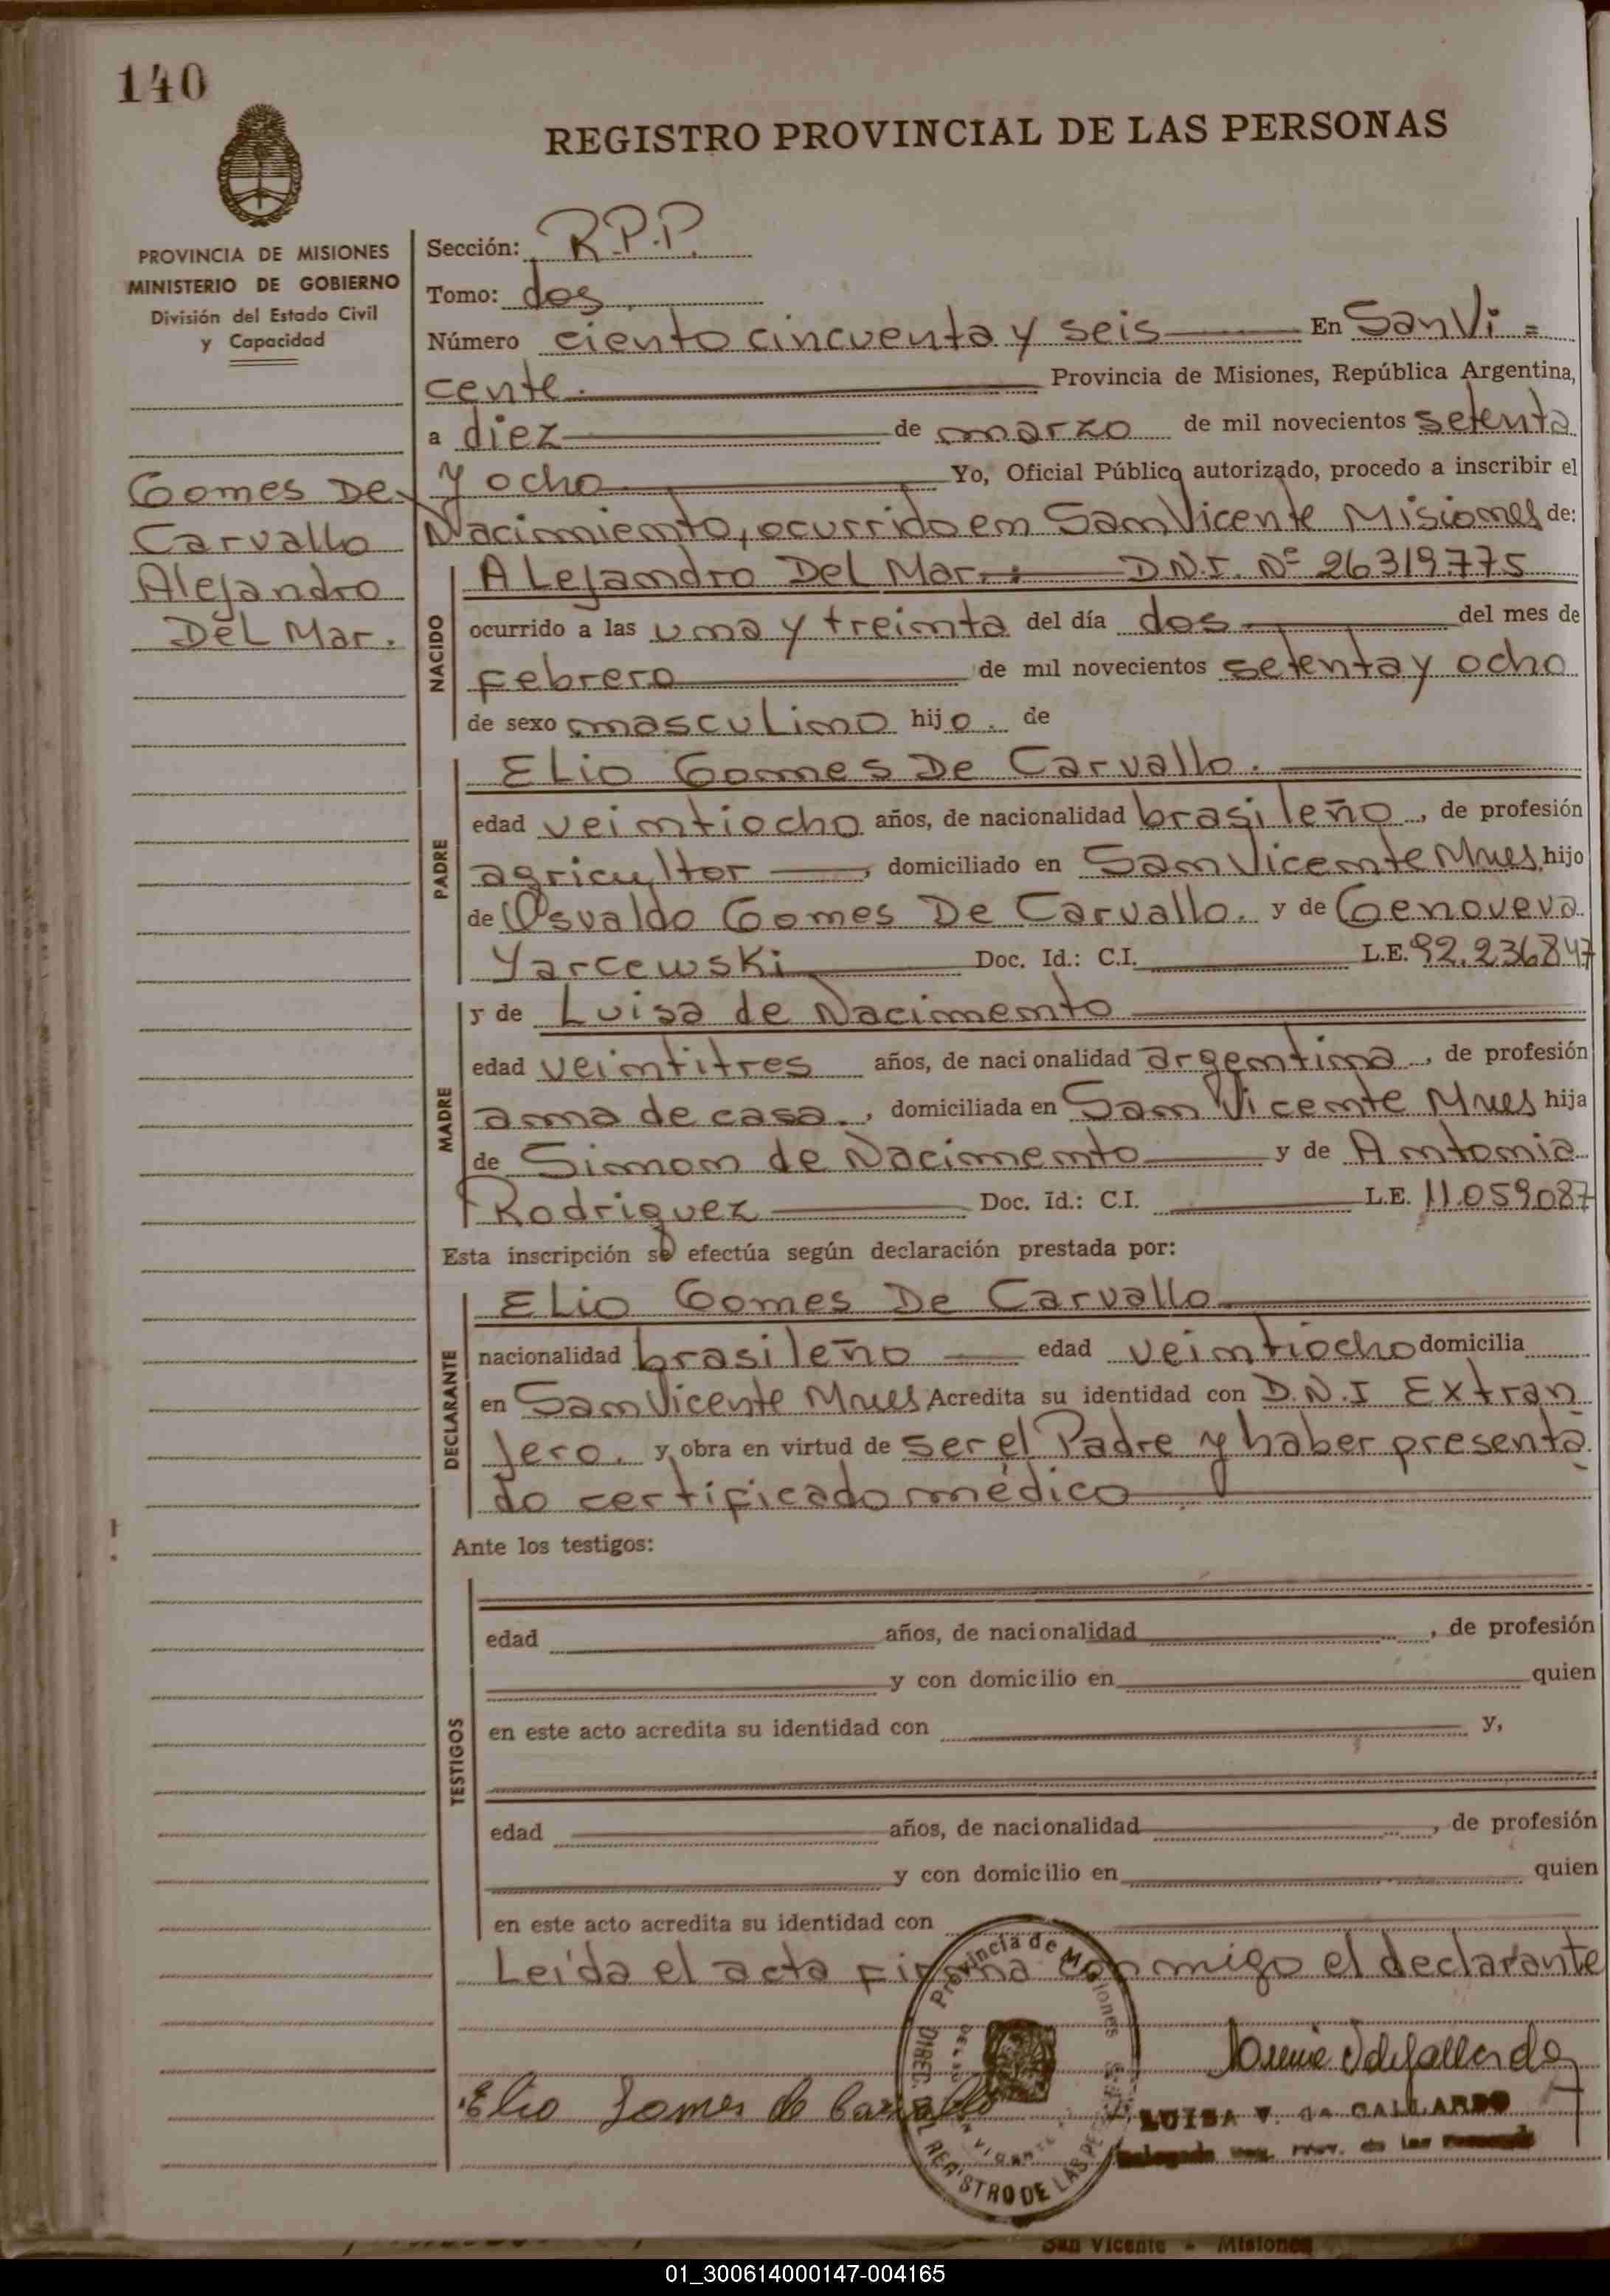 140
REGISTRO PROVINCIAL DE LAS PERSONAS
PROVINCIA DE MISIONES
MINISTERIO DE GOBIERNO
División del Estado Civil
y Capacidad
Gomes De
Carvallo
Alejandro
Del Mar.
Sección: R.P.P.
Tomo: dos
Número ciento cincuenta y seis En San Vi =
cente. Provincia de Misiones, República Argentina,
a diez de marzo de mil novecientos setenta
y ocho Yo, Oficial Público autorizado, procedo a inscribir el
Nacimiento, ocurrido en San Vicente Misiones de:
NACIDO
Alejandro Del Mar. D.N.I. Nº 26319.775
ocurrido a las una y treinta del día dos del mes de
febrero de mil novecientos setenta y ocho
de sexo masculino hijo. de
PADRE
Elio Gomes De Carvallo.
edad veintiocho años, de nacionalidad brasileño, de profesión
agricultor, domiciliado en San Vicente Mnes hijo
de Osvaldo Gomes De Carvallo. y de Genoveva
Yarcewski Doc. Id.: C.I. L.E. 92.236847
MADRE
y de Luisa de Nacimento
edad veintitres años, de nacionalidad argentina, de profesión
ama de casa., domiciliada en San Vicente Mnes hija
de Simon de Nacimento y de Antonia
Rodriguez Doc. Id.: C.I. L.E. 11.059.087
Esta inscripción se efectúa según declaración prestada por:
DECLARANTE
Elio Gomes De Carvallo
nacionalidad brasileño edad veintiocho domicilia
en San Vicente Mnes Acredita su identidad con D.N.I Extran
jero. y obra en virtud de ser el Padre y haber presenta
do certificado médico
Ante los testigos:
TESTIGOS
edad años, de nacionalidad, de profesión
y con domicilio en quien
en este acto acredita su identidad con y,
edad años, de nacionalidad, de profesión
y con domicilio en quien
en este acto acredita su identidad con
Leída el acta firma conmigo el declarante
Provincia de Misiones
DIREC. REGISTRO DE LAS
Elio Gomes de Carvallo
LUISA V. de GALLARDO
San Vicente - Misiones
01_300614000147-004165